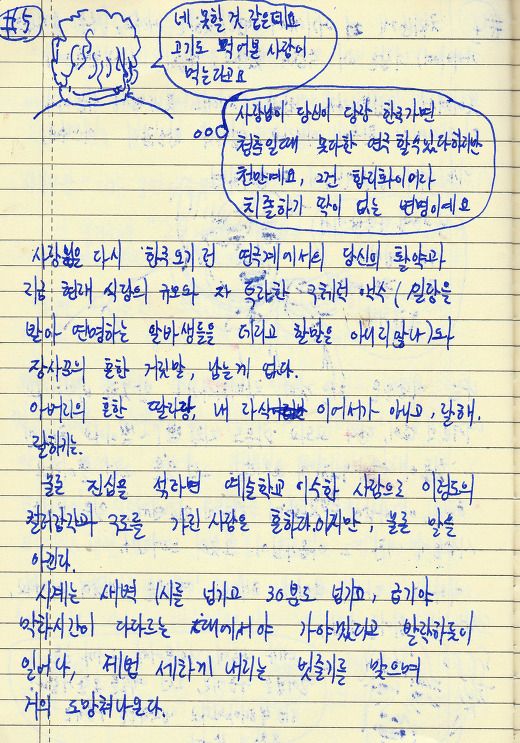 #5
네 못할 것 같은데요
고기도 먹어본 사람이
먹는다고요
사랑님이 당신이 당장 한국가면
청춘일때 못다한 연극할수있다하지만
천만예요, 그건 합리화이어라
치졸하기 짝이 없는 변명이예요
사랑님은 다시 한국오기 전 연극계에서의 당신의 활약과
지금 현재 식당의 규모와 자 액수 (일당을
받아 연명하는 알바생들을 데리고 할말은 아니리 말나)와
장사꾼의 흔한 거짓말, 남는게 없다.
아버리의 흔한 딸라랑, 내 라식 이어서가 아니고, 랄해.
랄하기는.
불론 진심을 석라면 예술학교 이수한 사람으로 이렁도의
컬러감각과 구도를 가린 사람은 흔하다.이지만, 불론 말을
아낀다.
시계는 새벽 1시를 넘기고 30분도 넘기고, 급기야
막차시간이 다다르는 때에서야 가야겠다고 발락하듯이
일어나, 제법 세차게 내리는 빗줄기를 맞으며
거의 도망쳐나온다.